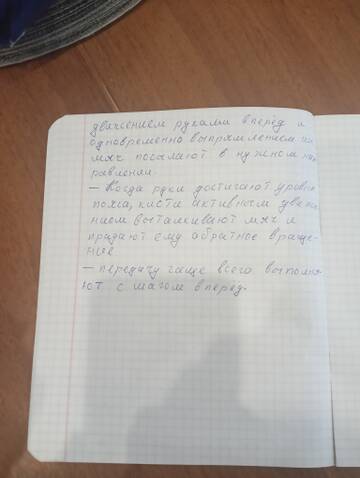 движением руками вперёд и
одновременно выпрямлением
мяч посылают в нужном нап
равлении.
– Когда руки достигают уровня
пояса, кисти активным движе
нием выталкивают мяч и
придают ему обратное враще-
ние
– передачу чаще всего выполня-
ют с шагом вперед.